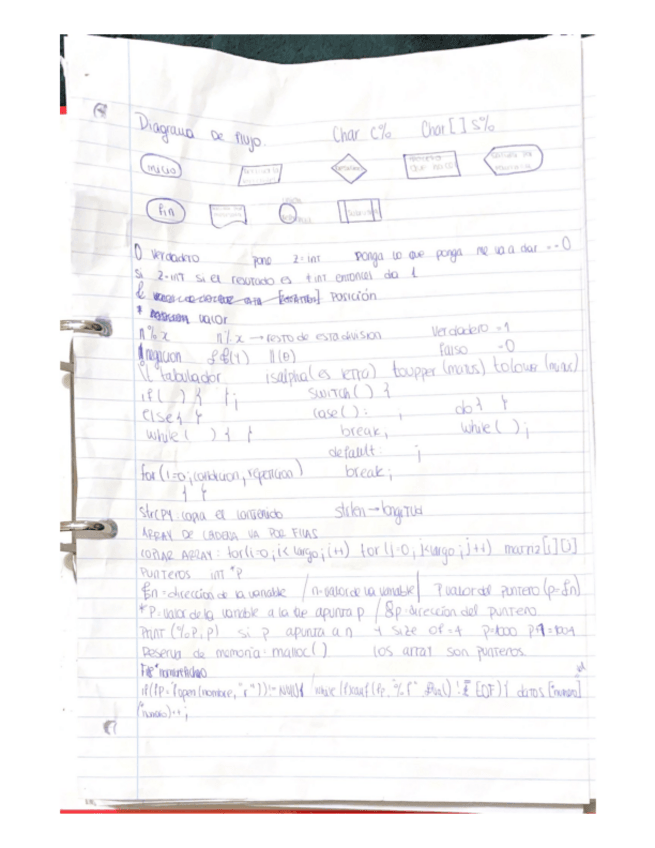 Diagrama de flujo. Char c% Char [ ] s%
inicio
Fin
0 verdadero pone 2 int ponga lo que ponga me va a dar -- 0
si 2-int si el resultado es + int entonces da 1
& posición
* valor
n% x n% x → resto de esta division Verdadero = 1
! negacion Falso = 0
tabulador isalpha (es letra) toupper (mayus) tolower (minus)
if ( ) { } ; switch ( ) {
else { } case ( ) : ; do { }
while ( ) { } break; while ( ) ;
default: ;
for (i=0; condicion, repeticion) break;
{ }
strcpy copia el contenido strlen → longitud
Array de cadena va por filas
copiar array: for (i=0; i< largo; i++) for (j=0; j<largo; j++) matriz[i][j]
Punteros int *p
&n = direccion de la variable / n = valor de la variable | P valor del puntero (p=&n)
*p = valor de la variable a la que apunta p / &p = direccion del puntero
Print (%p, p) si p apunta a n size of = 4 p=1000
Reserva de memoria: malloc ( ) los array son punteros
if ((fp = fopen (nombre, "r")) != NULL) { while (fscanf (fp, "%f" != EOF) { datos [numero]
(numero)++;